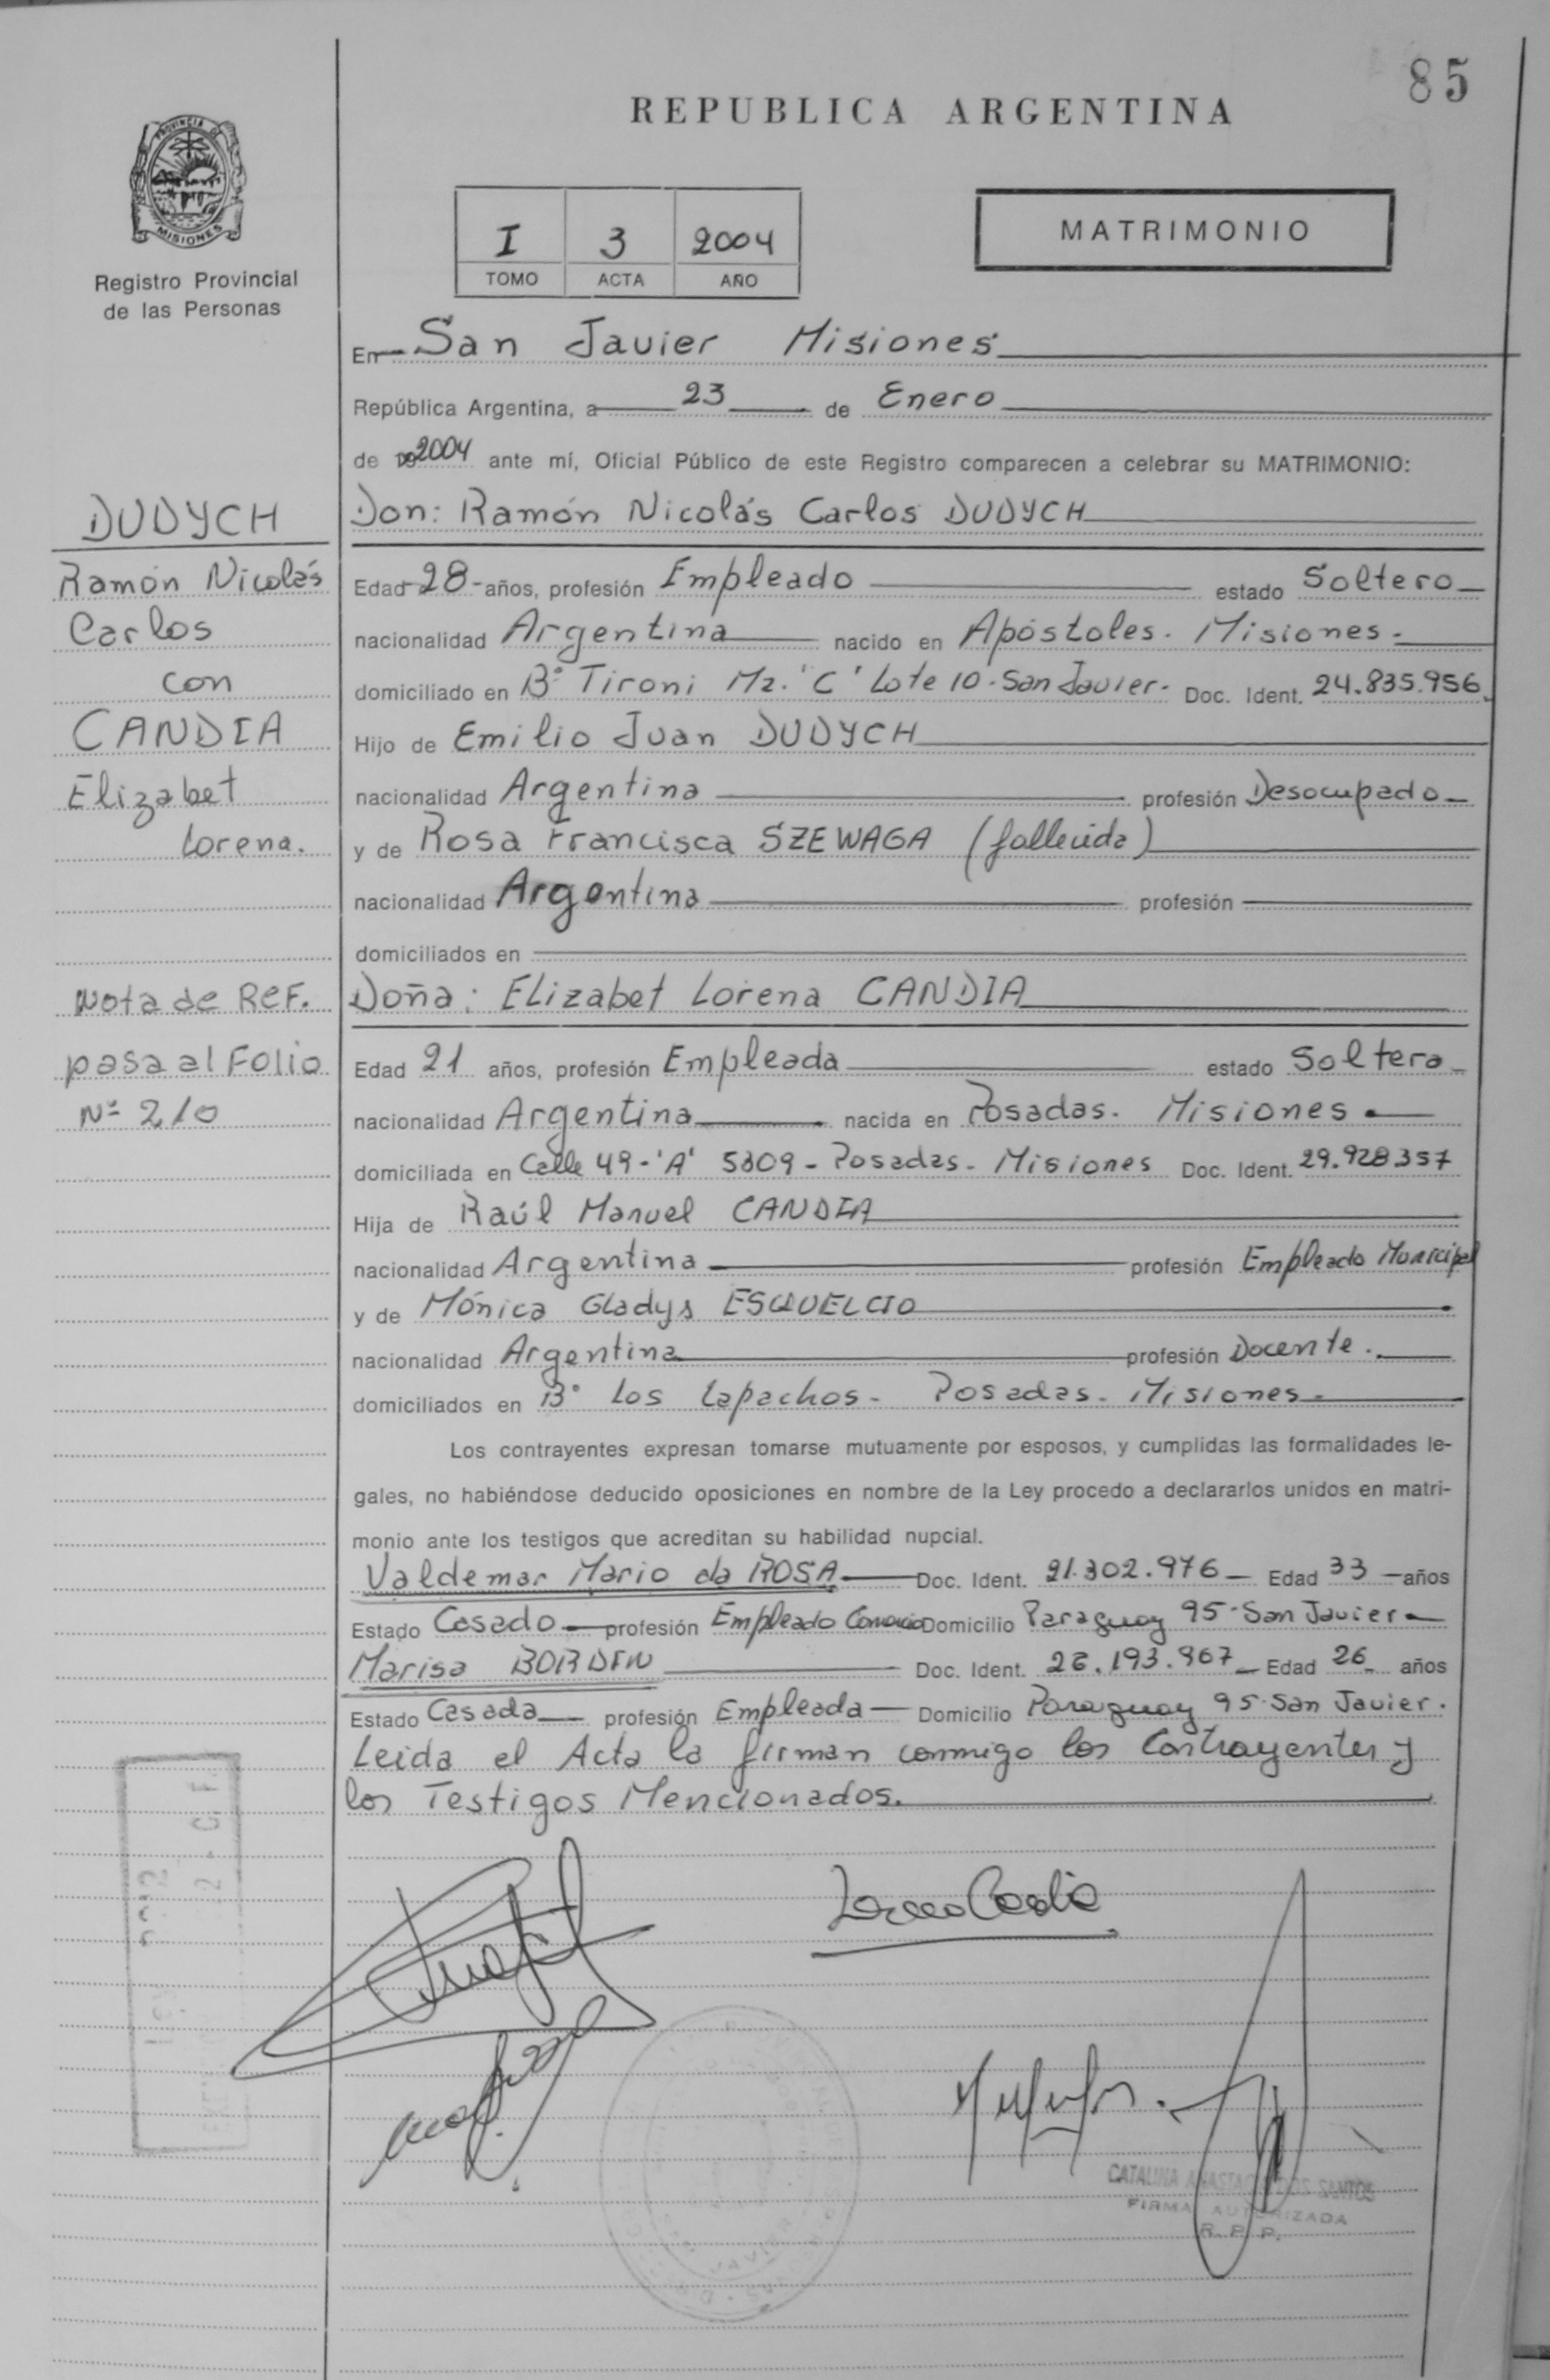 85
REPUBLICA ARGENTINA
PROVINCIA DE
MISIONES
Registro Provincial
de las Personas
I 3 2004
TOMO ACTA AÑO
MATRIMONIO
En San Javier Misiones
República Argentina, a 23 de Enero
de 2004 ante mí, Oficial Público de este Registro comparecen a celebrar su MATRIMONIO:
DUDYCH
Ramón Nicolás
Carlos
con
CANDIA
Elizabet
Lorena.
Nota de Ref.
pasa al Folio
Nº 210
Don: Ramón Nicolás Carlos DUDYCH
Edad 28 años, profesión Empleado estado Soltero
nacionalidad Argentina nacido en Apóstoles. Misiones.
domiciliado en Bº Tironi Mz. "C" Lote 10 - San Javier. Doc. Ident. 24.835.956
Hijo de Emilio Juan DUDYCH
nacionalidad Argentina profesión Desocupado
y de Rosa Francisca SZEWAGA (fallecida)
nacionalidad Argentina profesión
domiciliados en
Doña: Elizabet Lorena CANDIA
Edad 21 años, profesión Empleada estado Soltera
nacionalidad Argentina nacida en Posadas. Misiones
domiciliada en Calle 49-'A' 5809 - Posadas - Misiones Doc. Ident. 29.928357
Hija de Raúl Manuel CANDIA
nacionalidad Argentina profesión Empleado Municipal
y de Mónica Gladys ESQUELCIO
nacionalidad Argentina profesión Docente.
domiciliados en Bº Los Lapachos - Posadas - Misiones
Los contrayentes expresan tomarse mutuamente por esposos, y cumplidas las formalidades le-
gales, no habiéndose deducido oposiciones en nombre de la Ley procedo a declararlos unidos en matri-
monio ante los testigos que acreditan su habilidad nupcial.
Valdemar Mario da ROSA Doc. Ident. 21.302.976 Edad 33 años
Estado Casado profesión Empleado Comercio Domicilio Paraguay 95 - San Javier
Marisa BORDIN Doc. Ident. 26.193.967 Edad 26 años
Estado Casada profesión Empleada Domicilio Paraguay 95 - San Javier.
Leida el Acta la firman conmigo los Contrayentes y
los Testigos Mencionados.
CATALINA ANASTACIA DOS SANTOS
FIRMA AUTORIZADA
R. P. P.